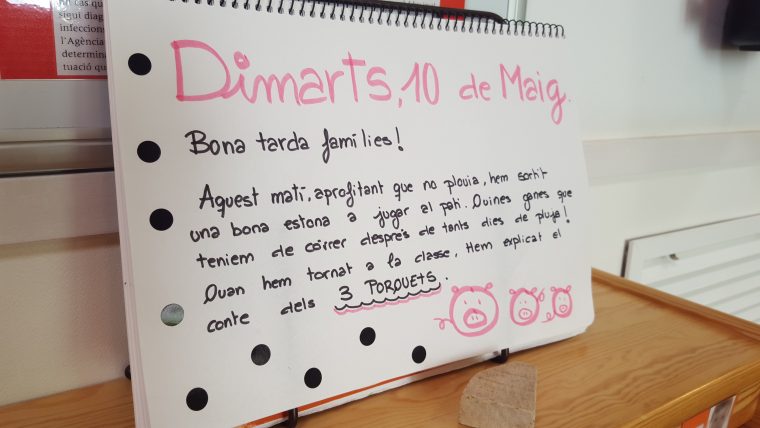 cas qu
sigui diag
infeccions
l'Agència
determina
tuació qu
Dimarts, 10 de Maig.
Bona tarda famílies!
Aquest matí, aprofitant que no plovia, hem sortit
una bona estona a jugar al pati. Quines ganes que
teniem de córrer després de tants dies de pluja!
Quan hem tornat a la classe, Hem explicat el
conte dels 3 PORQUETS.